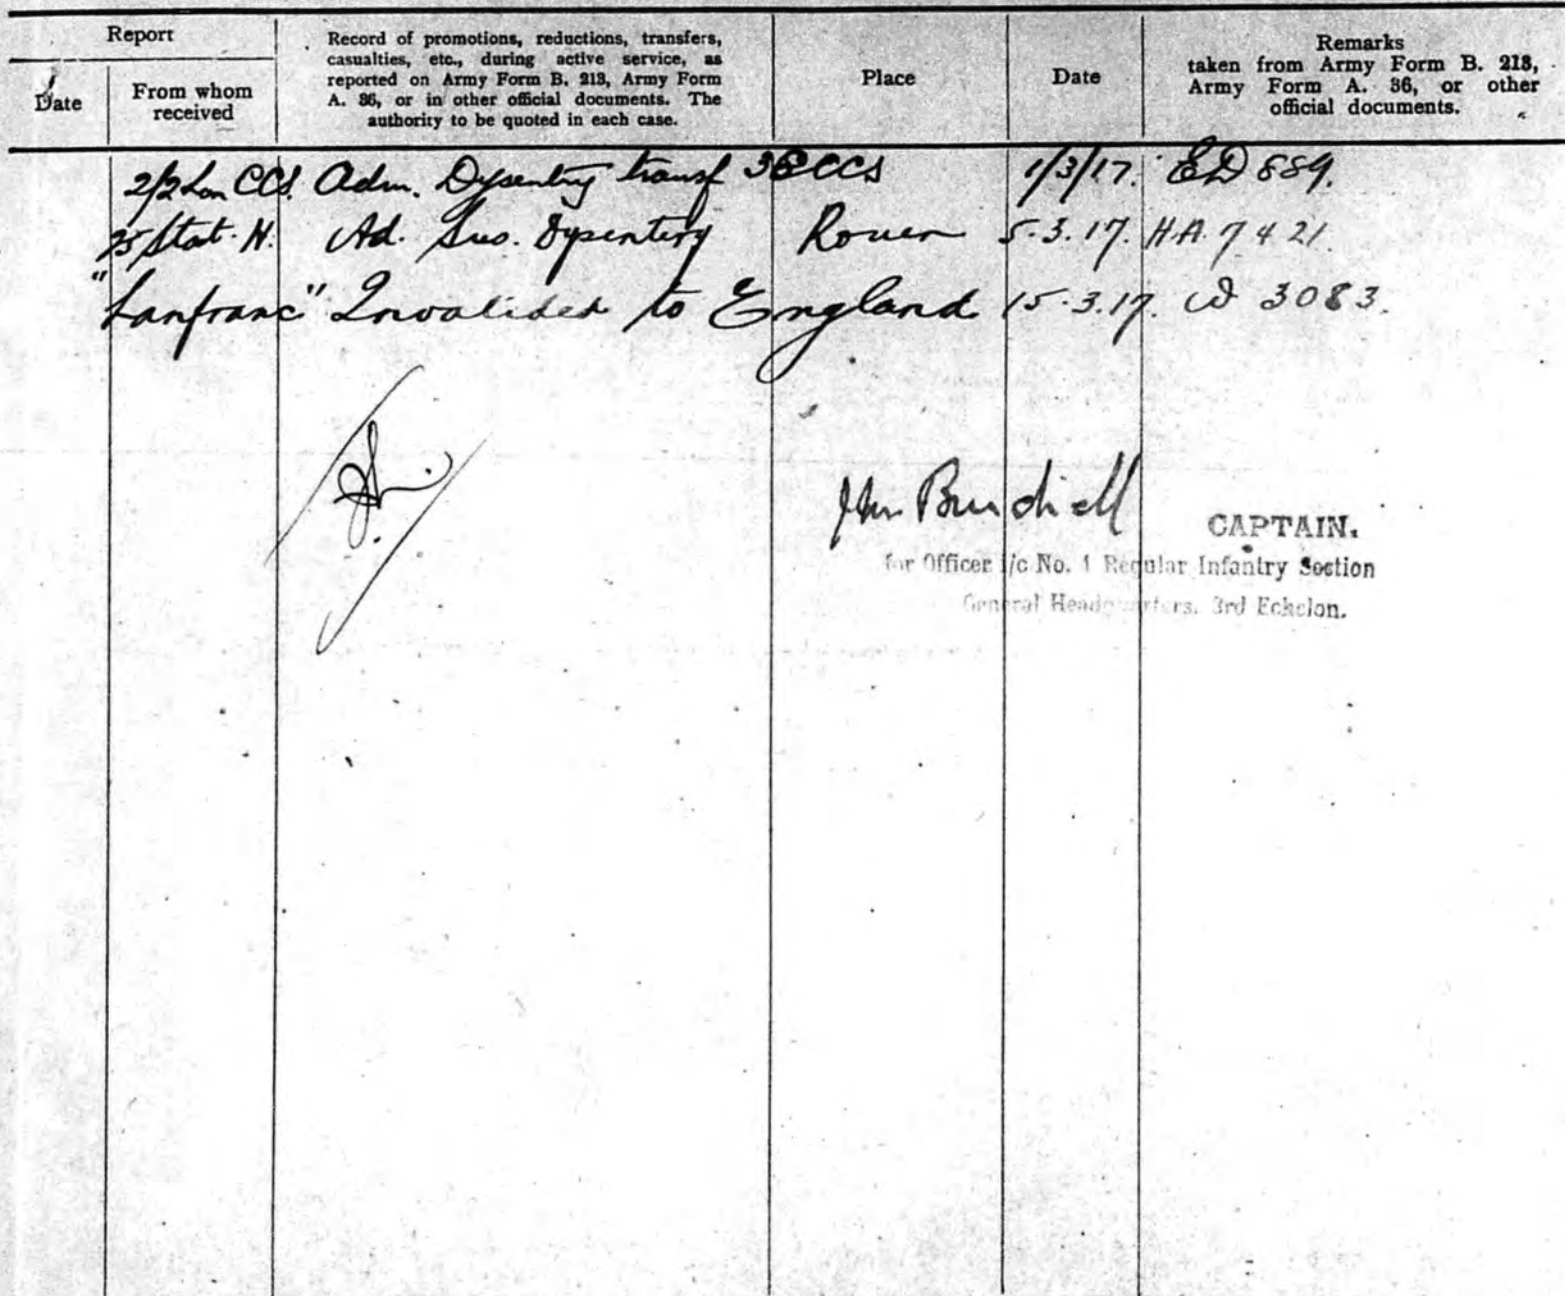 Report
Date
From whom
received
Record of promotions, reductions, transfers,
casualties, etc., during active service, as
reported on Army Form B. 213, Army Form
A. 36, or in other official documents. The
authority to be quoted in each case.
Place
Date
Remarks
taken from Army Form B. 213,
Army Form A. 36, or other
official documents.
2/2 Lon CCS. Adm. Dysentry transf CCS 1/3/17. ED 889.
25 Stat. H. Ad. Sus. Dysentery Rouen 5.3.17. H.A. 7421.
"Lanfranc" Invalided to England 15.3.17. W 3083.
CAPTAIN.
for Officer i/c No. 1 Regular Infantry Section
General Headquarters. 3rd Echelon.